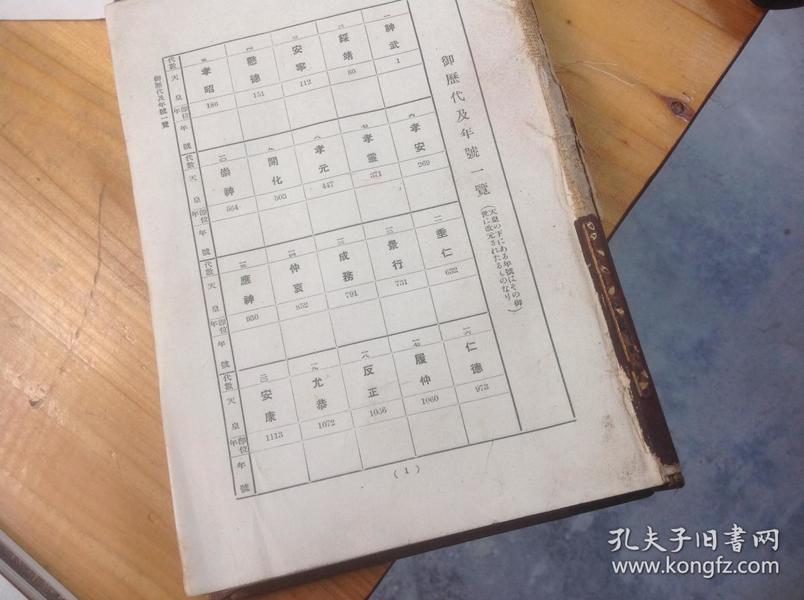 御歷代及年號一覽
(天皇の下にある年號はその御
世に改元されたるものなり)
一 神武 1
二 綏靖 80
三 安寧 112
四 懿德 151
五 孝昭 186
代數 天皇 即位年 年號
六 孝安 269
七 孝靈 371
八 孝元 447
九 開化 503
一〇 崇神 564
代數 天皇 即位年 年號
一一 垂仁 632
一二 景行 731
一三 成務 791
一四 仲哀 852
一五 應神 930
代數 天皇 即位年 年號
一六 仁德 973
一七 履仲 1060
一八 反正 1066
一九 允恭 1072
二〇 安康 1113
代數 天皇 即位年 年號
御歷代及年號一覽
(1)
孔夫子旧书网
www.kongfz.com